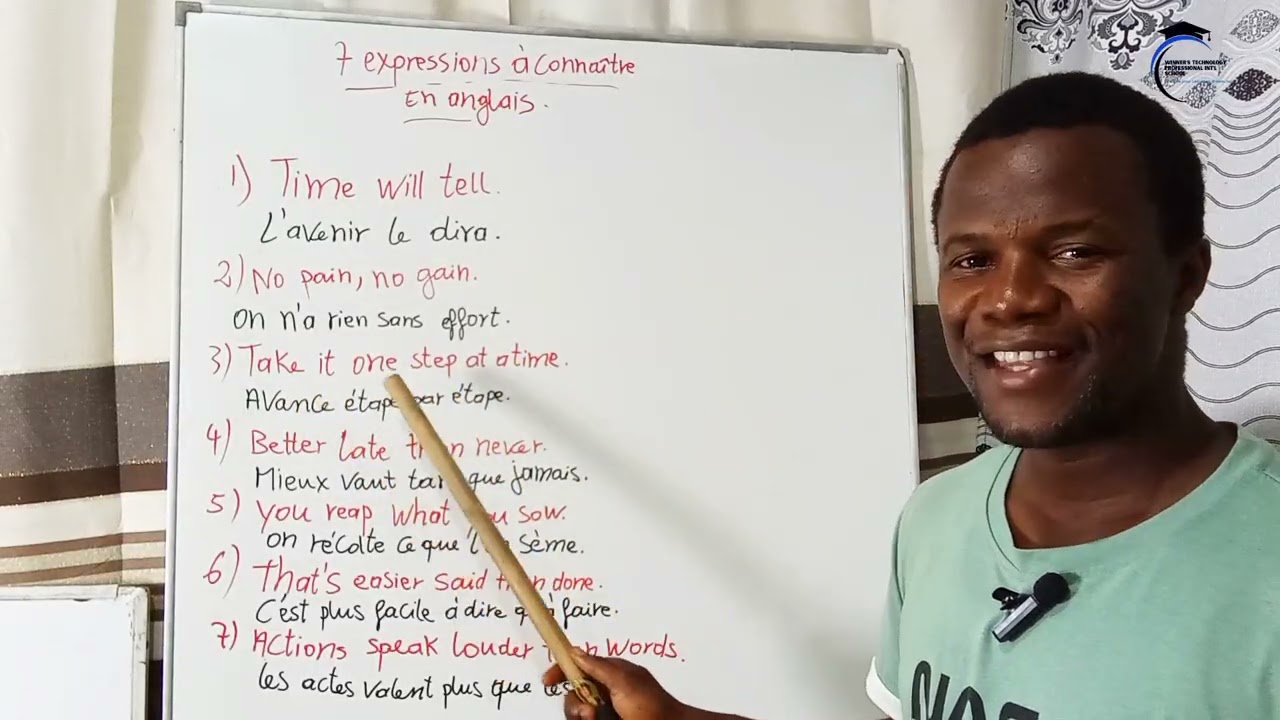 7 expressions à connaître
En anglais.
1) Time will tell.
L'avenir le dira.
2) No pain, no gain.
On n'a rien sans effort.
3) Take it one step at a time.
Avance étape par étape.
4) Better late than never.
Mieux vaut tard que jamais.
5) You reap what you sow.
on récolte ce que l'on sème.
6) That's easier said than done.
C'est plus facile à dire qu'à faire.
7) Actions speak louder than words.
les actes valent plus que les
WINNER'S TECHNOLOGY
PROFESSIONAL INT'L
SCHOOL